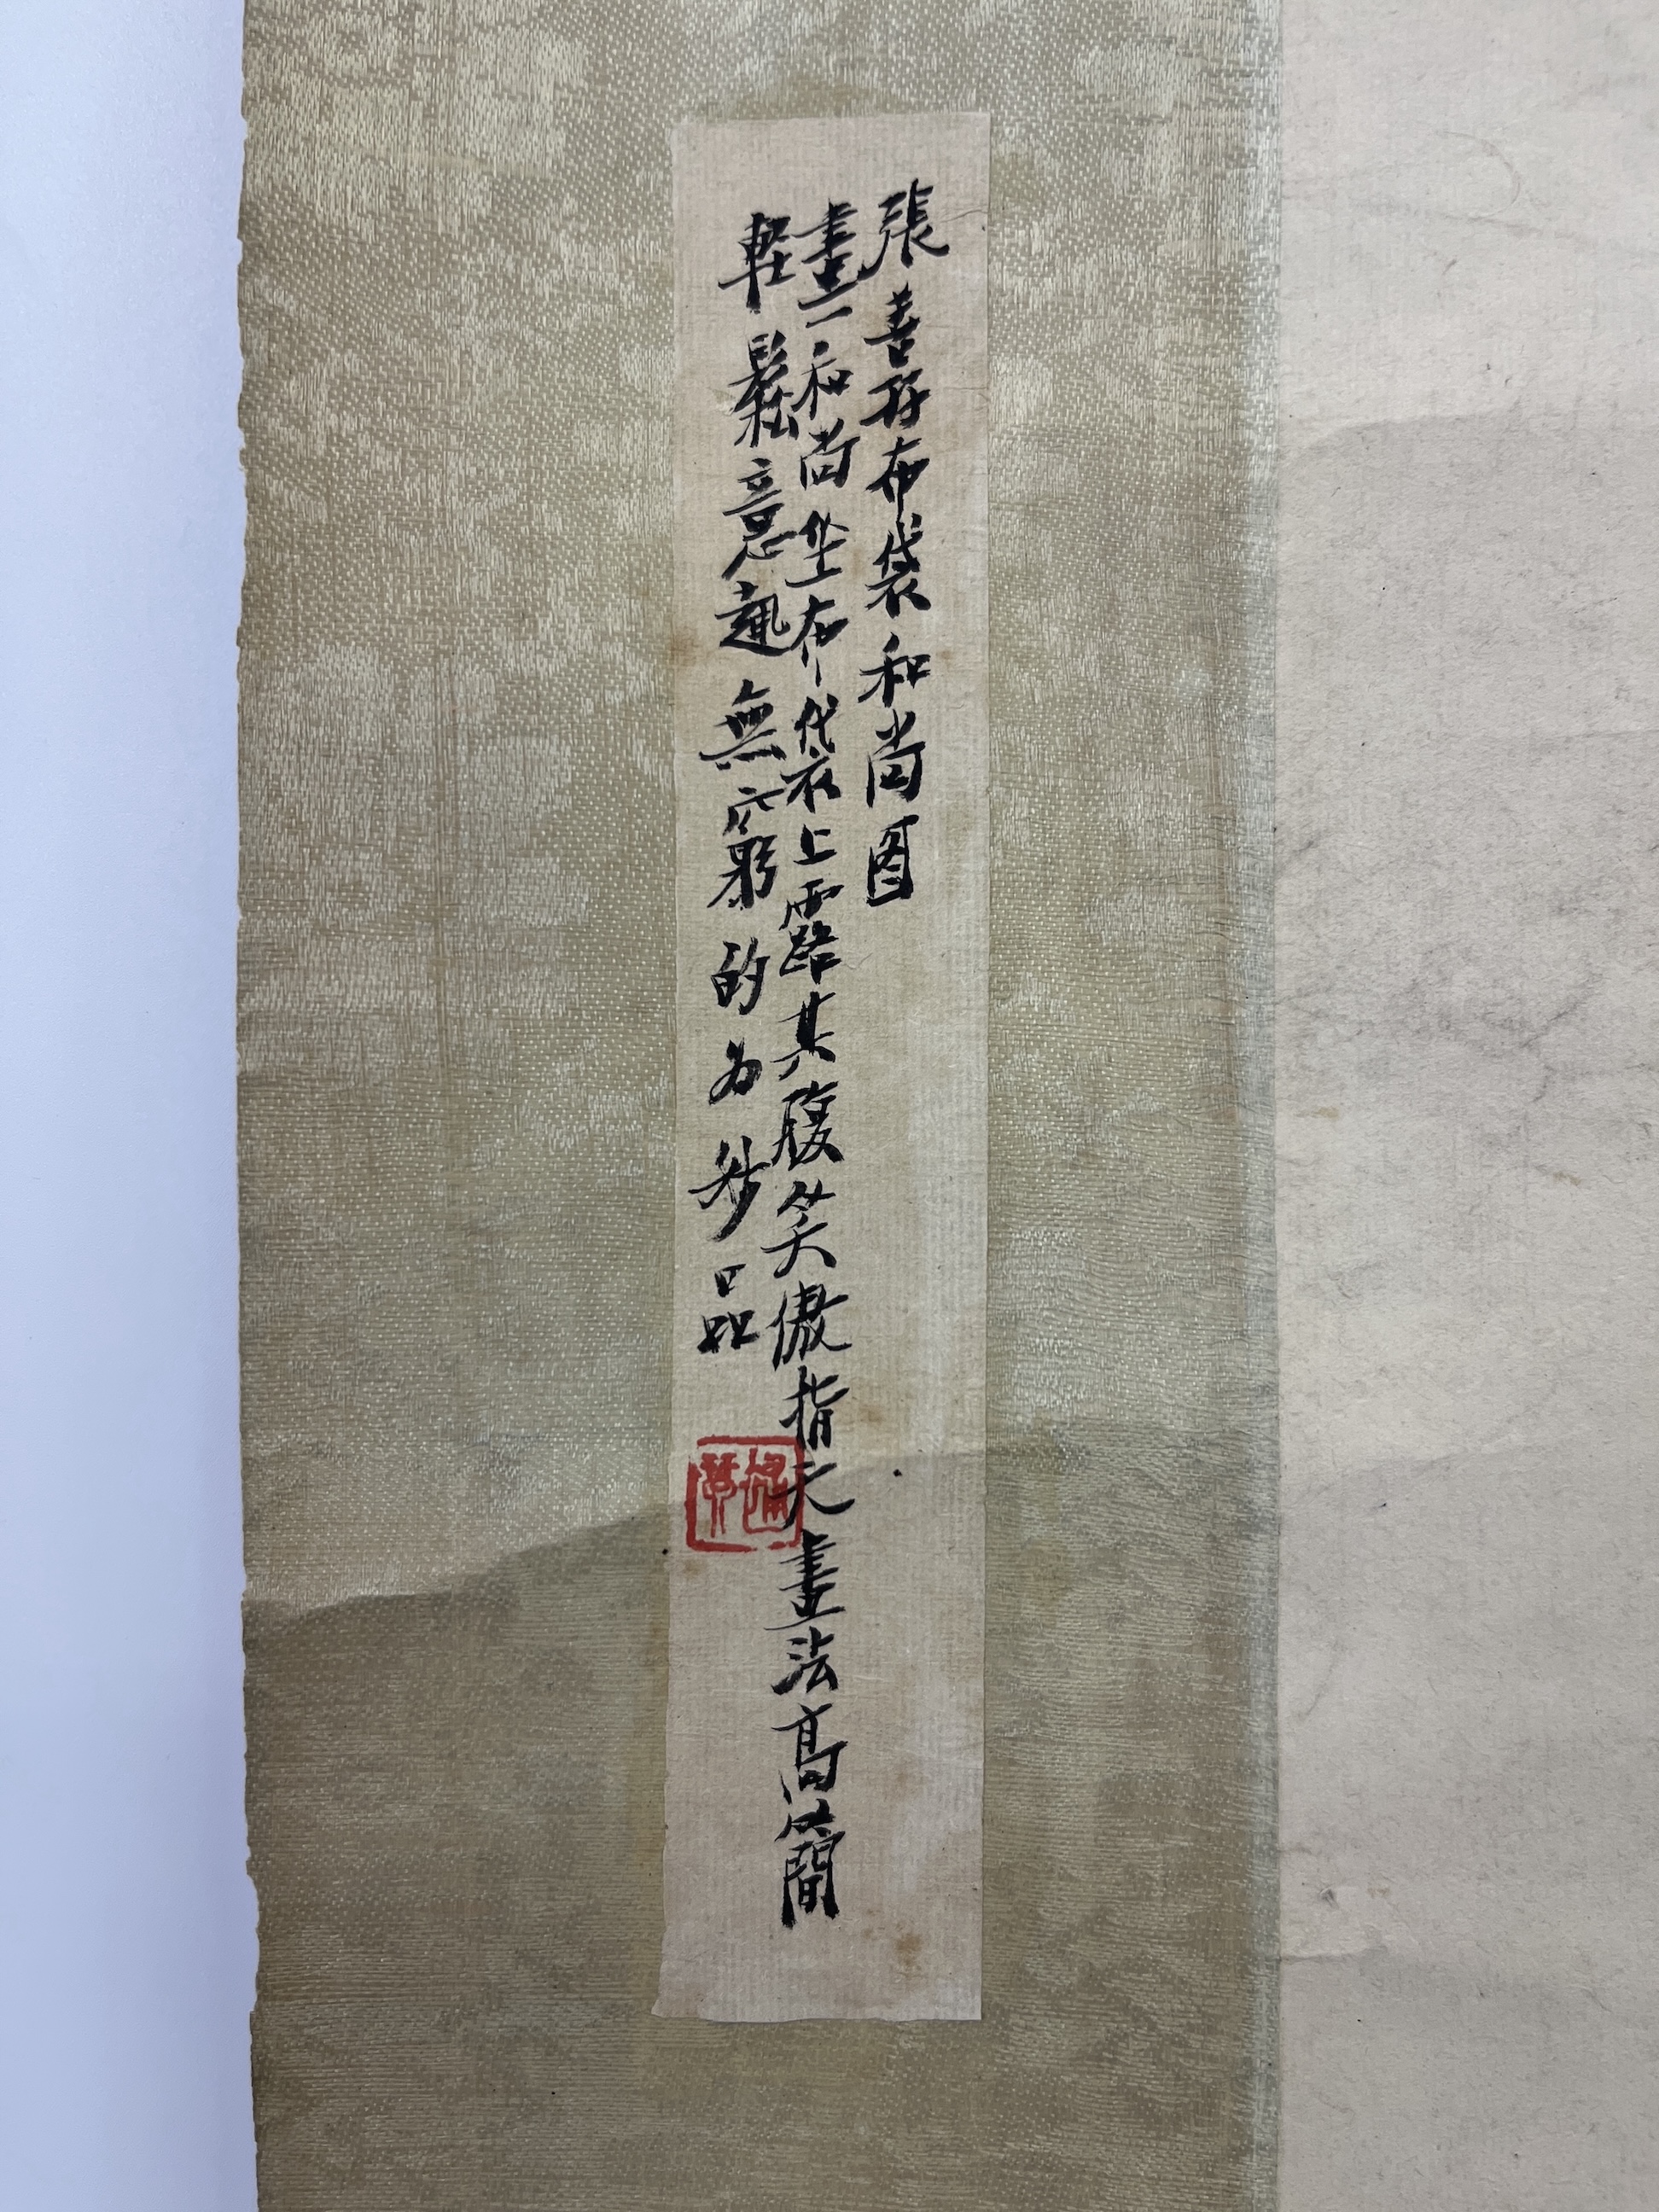 張善孖布袋和尚图
畫一和尚坐布袋上露其腹笑傲指天畫法高簡
軽鬆意趣無窮的为妙品